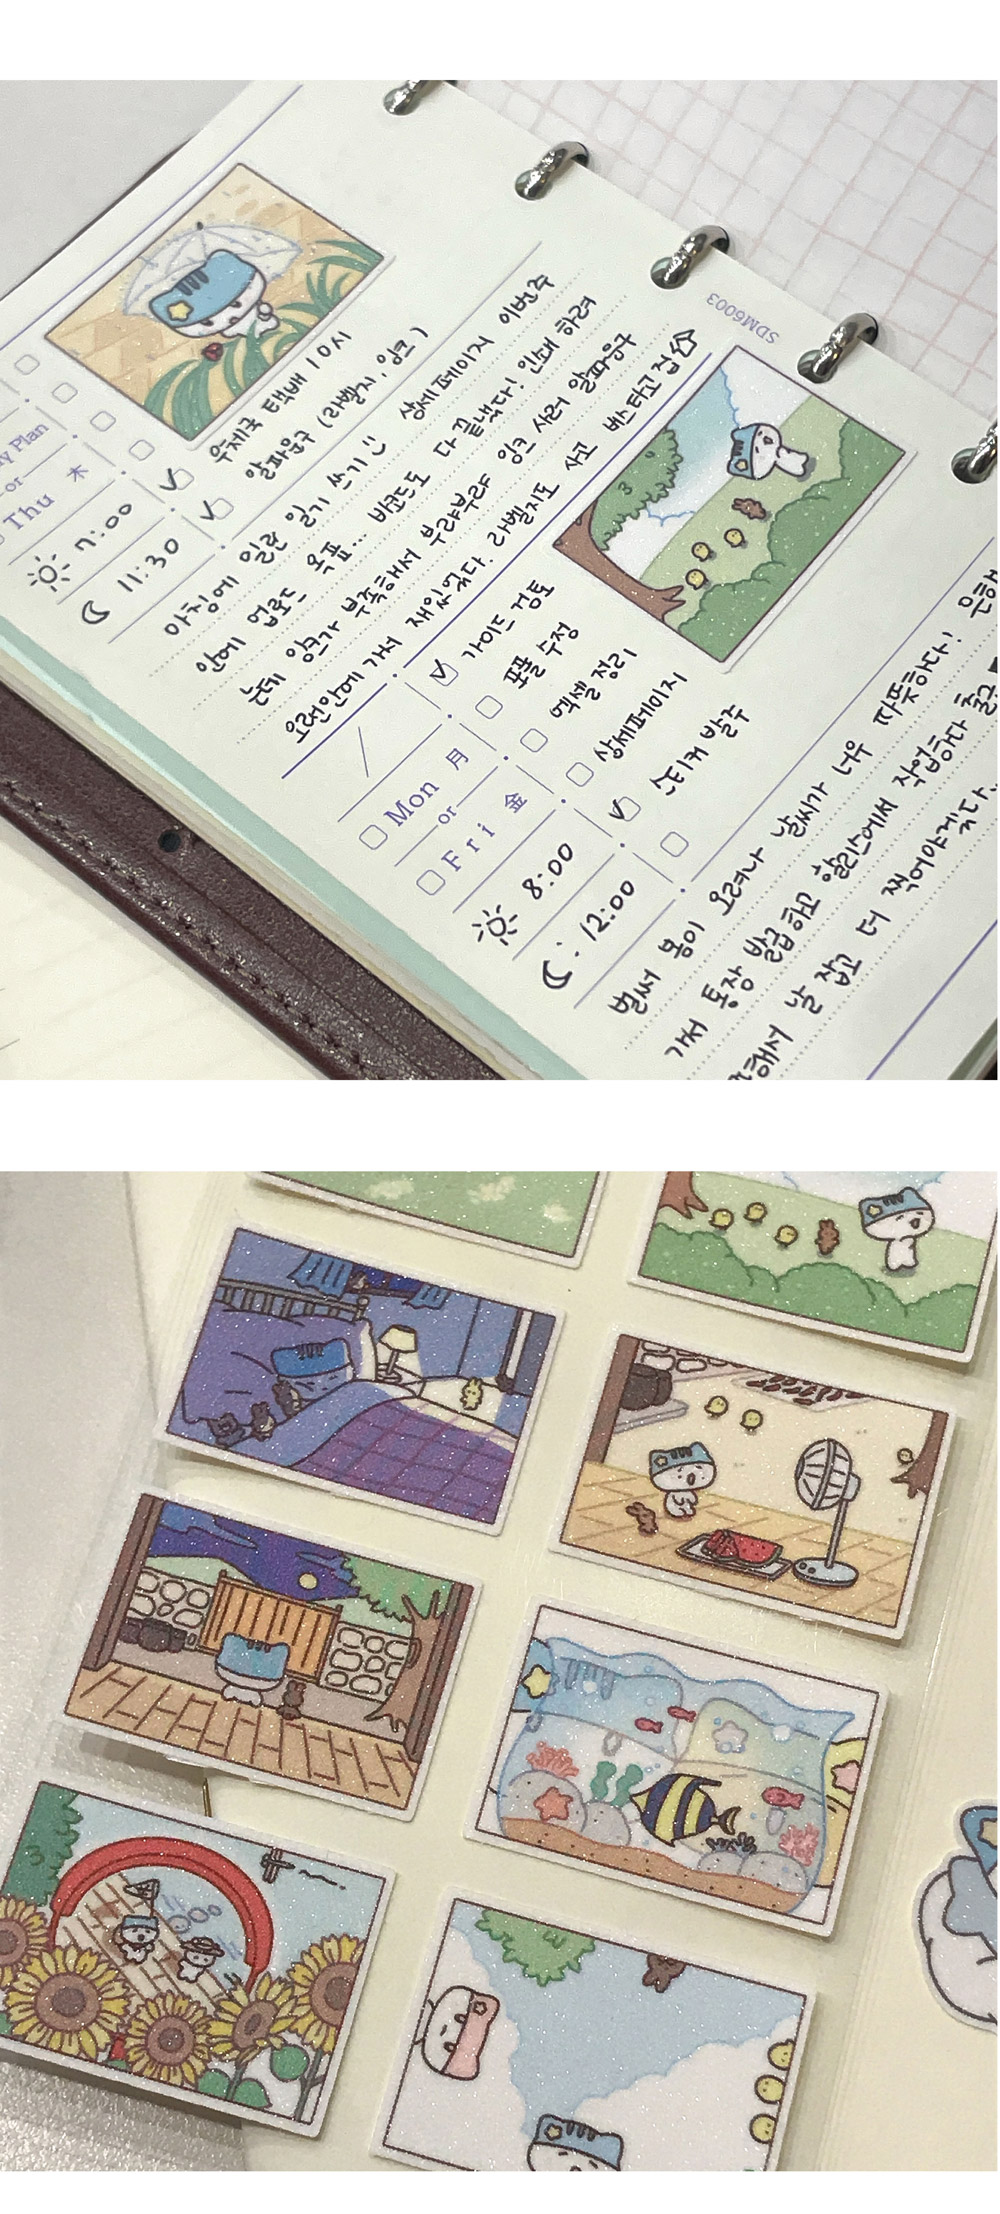 y Plan
or
Thu 木
7:00
11:30
우체국 택배 10시
알파문구 (라벨지, 잉크)
아침에 일란 일기 쓰기
상세페이지 이번주
안에 업로드 목표... 바코드도 다 끝냈다! 인쇄 하려
는데 잉크가 부족해서 부랴부랴 잉크 사러 알파문구
오천안에 가서 재밌었다. 라벨지도 사고 버스타고 집
SDM6003
Mon 月
or
Fri 金
8:00
12:00
가이드 검토
포폴 수정
엑셀 정리
상세페이지
스티커 발주
벌써 봄이 오려나 날씨가 너무 따뜻하다! 은행
가서 통장 발급하고 알라딘에서 작업하다 출근
해서 날 잡고 더 찍어야겠다.